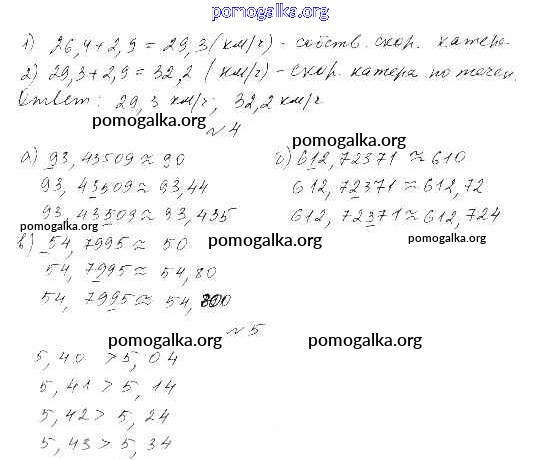 pomogalka.org
1) 26,4 + 2,9 = 29,3 (км/ч) - собств. скор. катера.
2) 29,3 + 2,9 = 32,2 (км/ч) - скор. катера по течен.
Ответ: 29,3 км/ч; 32,2 км/ч
pomogalka.org
№ 4
pomogalka.org
а) 93,43509 ≈ 90 б) 612,72371 ≈ 610
93,43509 ≈ 93,44 612,72371 ≈ 612,72
93,43509 ≈ 93,435 612,72371 ≈ 612,724
pomogalka.org
в) 54,7995 ≈ 50 pomogalka.org pomogalka.org
54,7995 ≈ 54,80
54,7995 ≈ 54,800
№ 5
pomogalka.org pomogalka.org
5,40 > 5,04
5,41 > 5,14
5,42 > 5,24
5,43 > 5,34